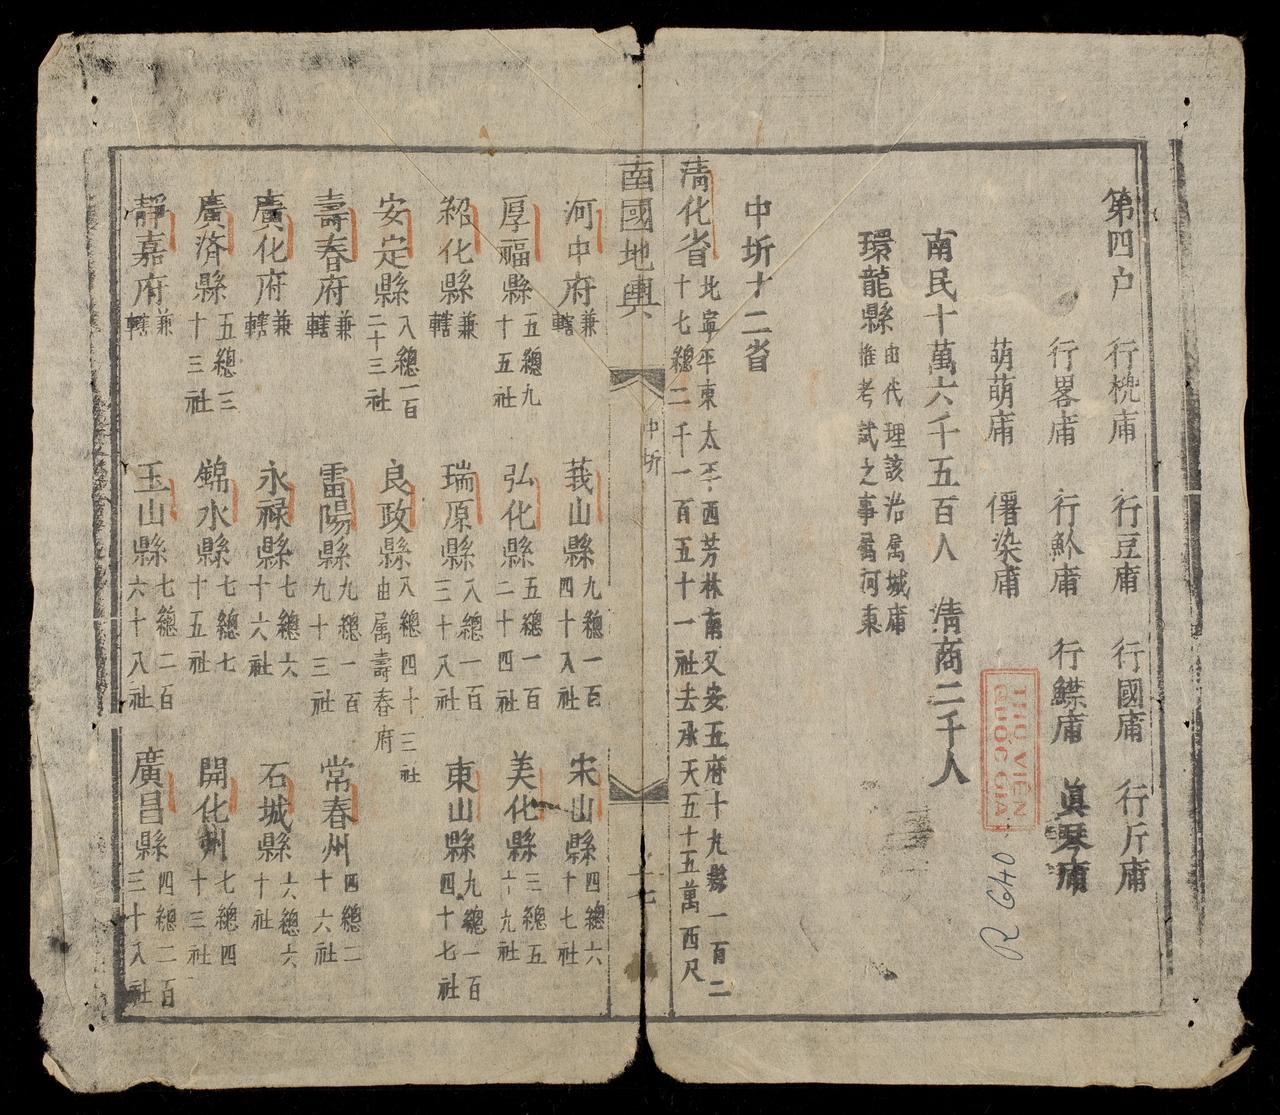 第四户 行桄庯 行豆庯 行國庯 行斤庯
行畧庯 行魪庯 行鰈庯 眞琴庯
萌萌庯 㒔染庯
南民十萬六千五百人 清商二千人
環龍縣 由代理該治属城庯
惟考試之事属河東
中圻十二省
清化省 北寧平東太平西芳林南又安五府十九縣一百二
十七總二千一百五十一社去承天五十五萬西尺
南國地輿 中圻 十七
河中府 兼轄 莪山縣 九總一百四十八社 宋山縣 四總六十七社
厚福縣 五總九十五社 弘化縣 五總一百二十四社 美化縣 三總五十九社
紹化縣 兼轄 瑞原縣 八總一百三十八社 東山縣 九總一百四十七社
安定縣 八總一百二十三社 良政縣 八總四十三社由属壽春府
壽春府 兼轄 雷陽縣 九總一百九十三社 常春州 四總二十六社
廣化府 兼轄 永禄縣 七總六十六社 石城縣 六總六十社
廣済縣 五總三十三社 錦水縣 七總七十五社 開化州 七總四十三社
靜嘉府 兼轄 玉山縣 七總二百六十八社 廣昌縣 四總二百三十八社
THƯ VIỆN
QUỐC GIA
R 640